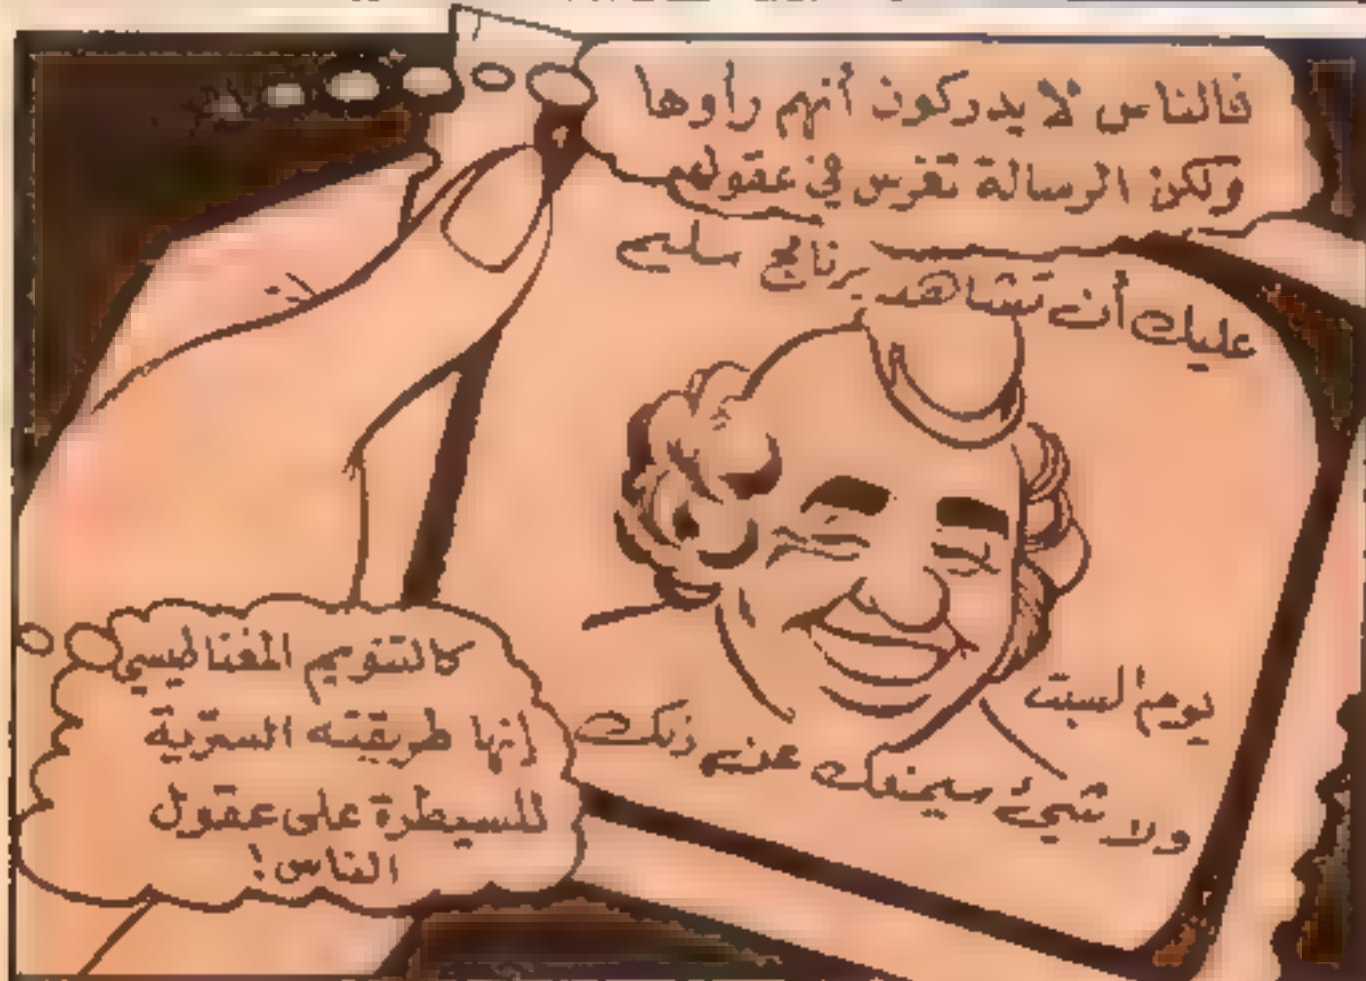 فالناس لا يدركون أنهم رأوها
ولكن الرسالة تغرس في عقولهم
عليك أن تشاهد برنامج سليم
يوم السبت
ولا شيئ سيمنعك عن ذلك
كالتنويم المغناطيسي
إنها طريقته السرية
للسيطرة على عقول
الناس!